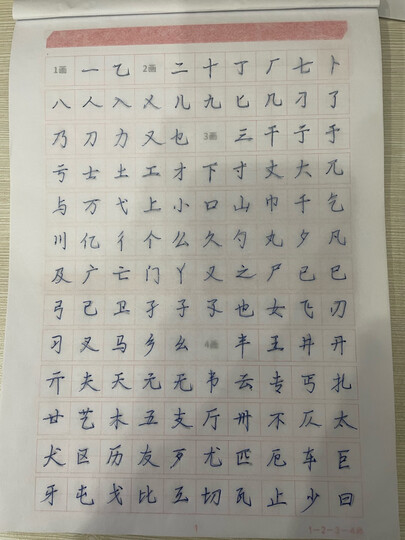 1画 一 乙 2画 二 十 丁 厂 七 卜
八 人 入 乂 儿 九 匕 几 刁 了
乃 刀 力 又 乜 3画 三 干 亍 于
亏 士 土 工 才 下 寸 丈 大 兀
与 万 弋 上 小 口 山 巾 千 乞
川 亿 彳 个 么 久 勺 丸 夕 凡
及 广 亡 门 丫 义 之 尸 已 巳
弓 己 卫 孑 子 孓 也 女 飞 刃
习 叉 马 乡 幺 4画 丰 王 井 开
亓 夫 天 无 无 韦 云 专 丐 扎
廿 艺 木 五 支 厅 卅 不 仄 太
犬 区 历 友 歹 尤 匹 厄 车 巨
牙 屯 戈 比 互 切 瓦 止 少 曰
1
1-2-3-4画